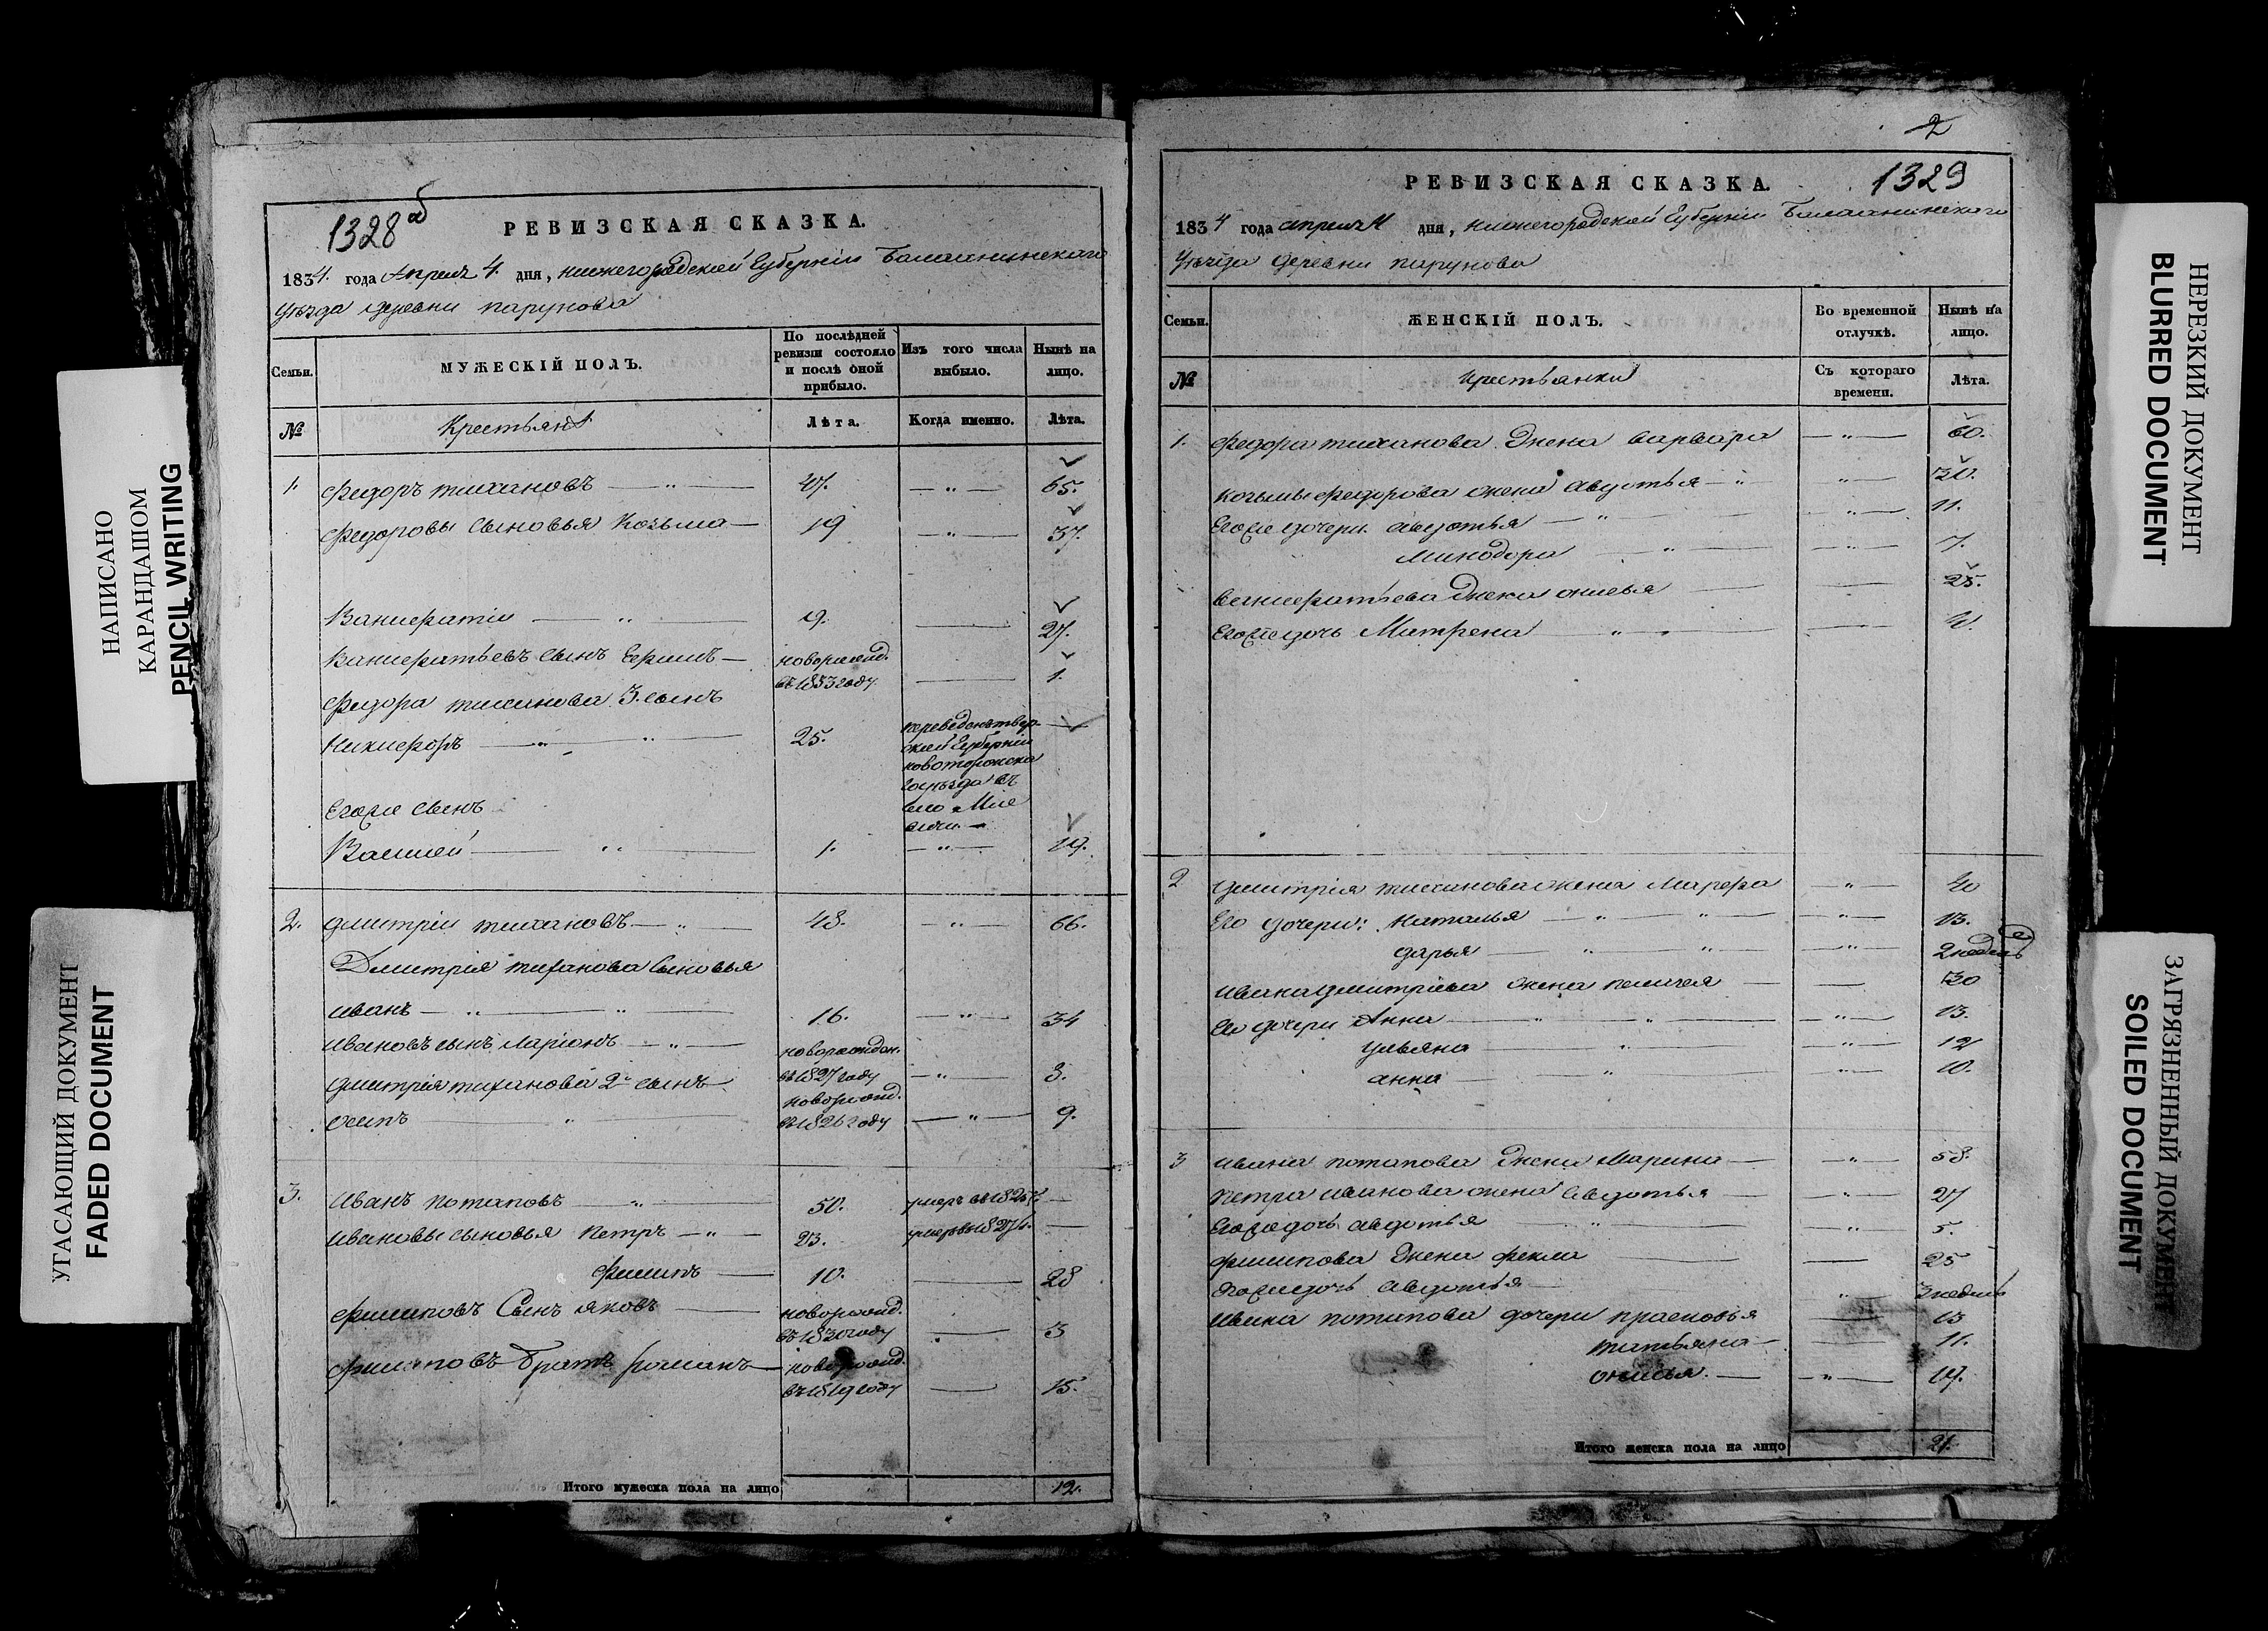 НАПИСАНО
КАРАНДАШОМ
PENCIL WRITING
УГАСАЮЩИЙ ДОКУМЕНТ
FADED DOCUMENT
1328 об
РЕВИЗСКАЯ СКАЗКА.
1834. года Апреля 4. дня, нижегородской Губернiи Балахнинскаго
Уѣзда деревни парунова
Семьи.
МУЖЕСКIЙ ПОЛЪ.
По послѣдней ревизiи состояло и послѣ оной прибыло.
Изъ того числа выбыло.
Нынѣ на лицо.
№
Крестьянѣ
Лѣта.
Когда именно.
Лѣта.
1. Федоръ тихановъ — " — 47. — " — 65.
Федоровы сыновья Козьма — 19 — " — 37.
Ванифатiи — " — 9. — 27.
Ванифатьевъ сынъ Ефимъ — новорожд. въ 1833 году — 1.
Федора тиханова 3. сынъ
Никифоръ — " — " — 25.
переведенъ твер-
ской Губернiи
новоторжска
го уѣзда въ
село
Егоже сынъ
Василей — " — 1. — " — 19.
2. дмитрiи тихановъ — " — 48. — " — 66.
Дмитрiя тиханова сыновья
иванъ — " — " — 16. — " — 34
ивановъ сынъ ларiонъ — " — новорожден. въ 1827 году — " — 8.
дмитрiя тиханова 2й сынъ
осипъ — " — новорожд. въ 1826 году — " — 9.
3. Иванъ потаповъ — " — 50. умеръ въ —
ивановы сыновья петръ — " — 23. умеръ —
Филипъ — 10. — 28
Филиповъ Сынъ яковъ — новорожд. въ 1830 году — 3
Филиповъ братъ романъ — новорожд. въ 1819 году — 15.
Итого мужеска пола на лицо 12.
2
РЕВИЗСКАЯ СКАЗКА.
1329
1834 года апреля 4 дня, нижегородской Губернiи Балахнинскаго
Уѣзда деревни парунова
Семьи.
ЖЕНСКIЙ ПОЛЪ.
Во временной отлучкѣ.
Нынѣ на лицо.
№
крестьянки
Съ котораго времени.
Лѣта.
1. Федора тиханова жена варвара — " — 60.
козьмы федорова жена авдотья — " — " — 30.
Егоже дочери авдотья — " — " — 11.
Минодора — " — " — 7.
ванифатьева жена онисья — 25.
Егоже дочь Матрена — " — 4.
2 дмитрiя тиханова жена Марфа — " — 40
Его дочери: наталья — " — " — " — 13.
дарья — " — " — " — 2 недели
ивана дмитрiева жена пелагея — 30
Его дочери Анна — " — " — " — 13.
ульяна — " — " — 12
анна — " — " — 10.
3 ивана потапова жена Марина — " — 58.
петра иванова жена авдотья — " — 27
Егоже дочь авдотья — " — " — 5.
филипова жена фекла — 25
Егоже дочь авдотья — " — 3 недели
ивана потапова дочери прасковья — 13
татьяна — 11.
онисья. — " — 19.
Итого женска пола на лицо 21.
НЕРЕЗКИЙ ДОКУМЕНТ
BLURRED DOCUMENT
ЗАГРЯЗНЕННЫЙ ДОКУМЕНТ
SOILED DOCUMENT